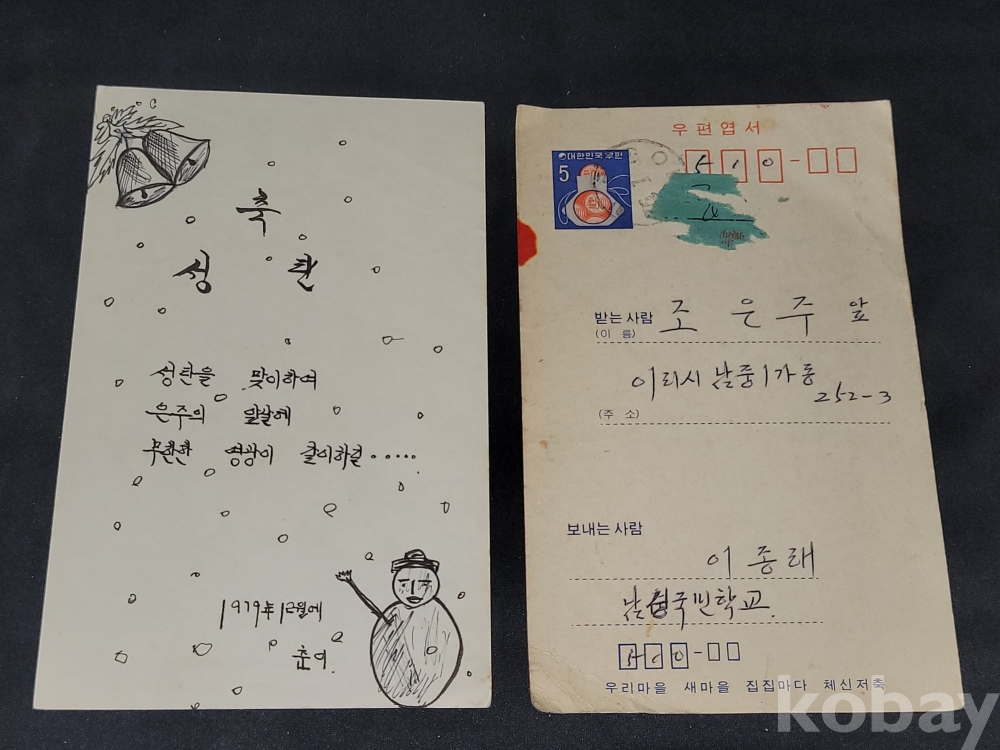 축
성 탄
성탄을 맞이하여
은주의 앞날에
무한한 영광이 같이하길.....
1979年 12월에
춘이.
우편엽서
대한민국우편
5
510-
받는사람 조 은 주 앞
(이 름)
이리시 남중1가동
252-3
(주 소)
보내는사람
이 종 래
남성국민학교.
510-
우리마을 새마을 집집마다 체신저축
kobay